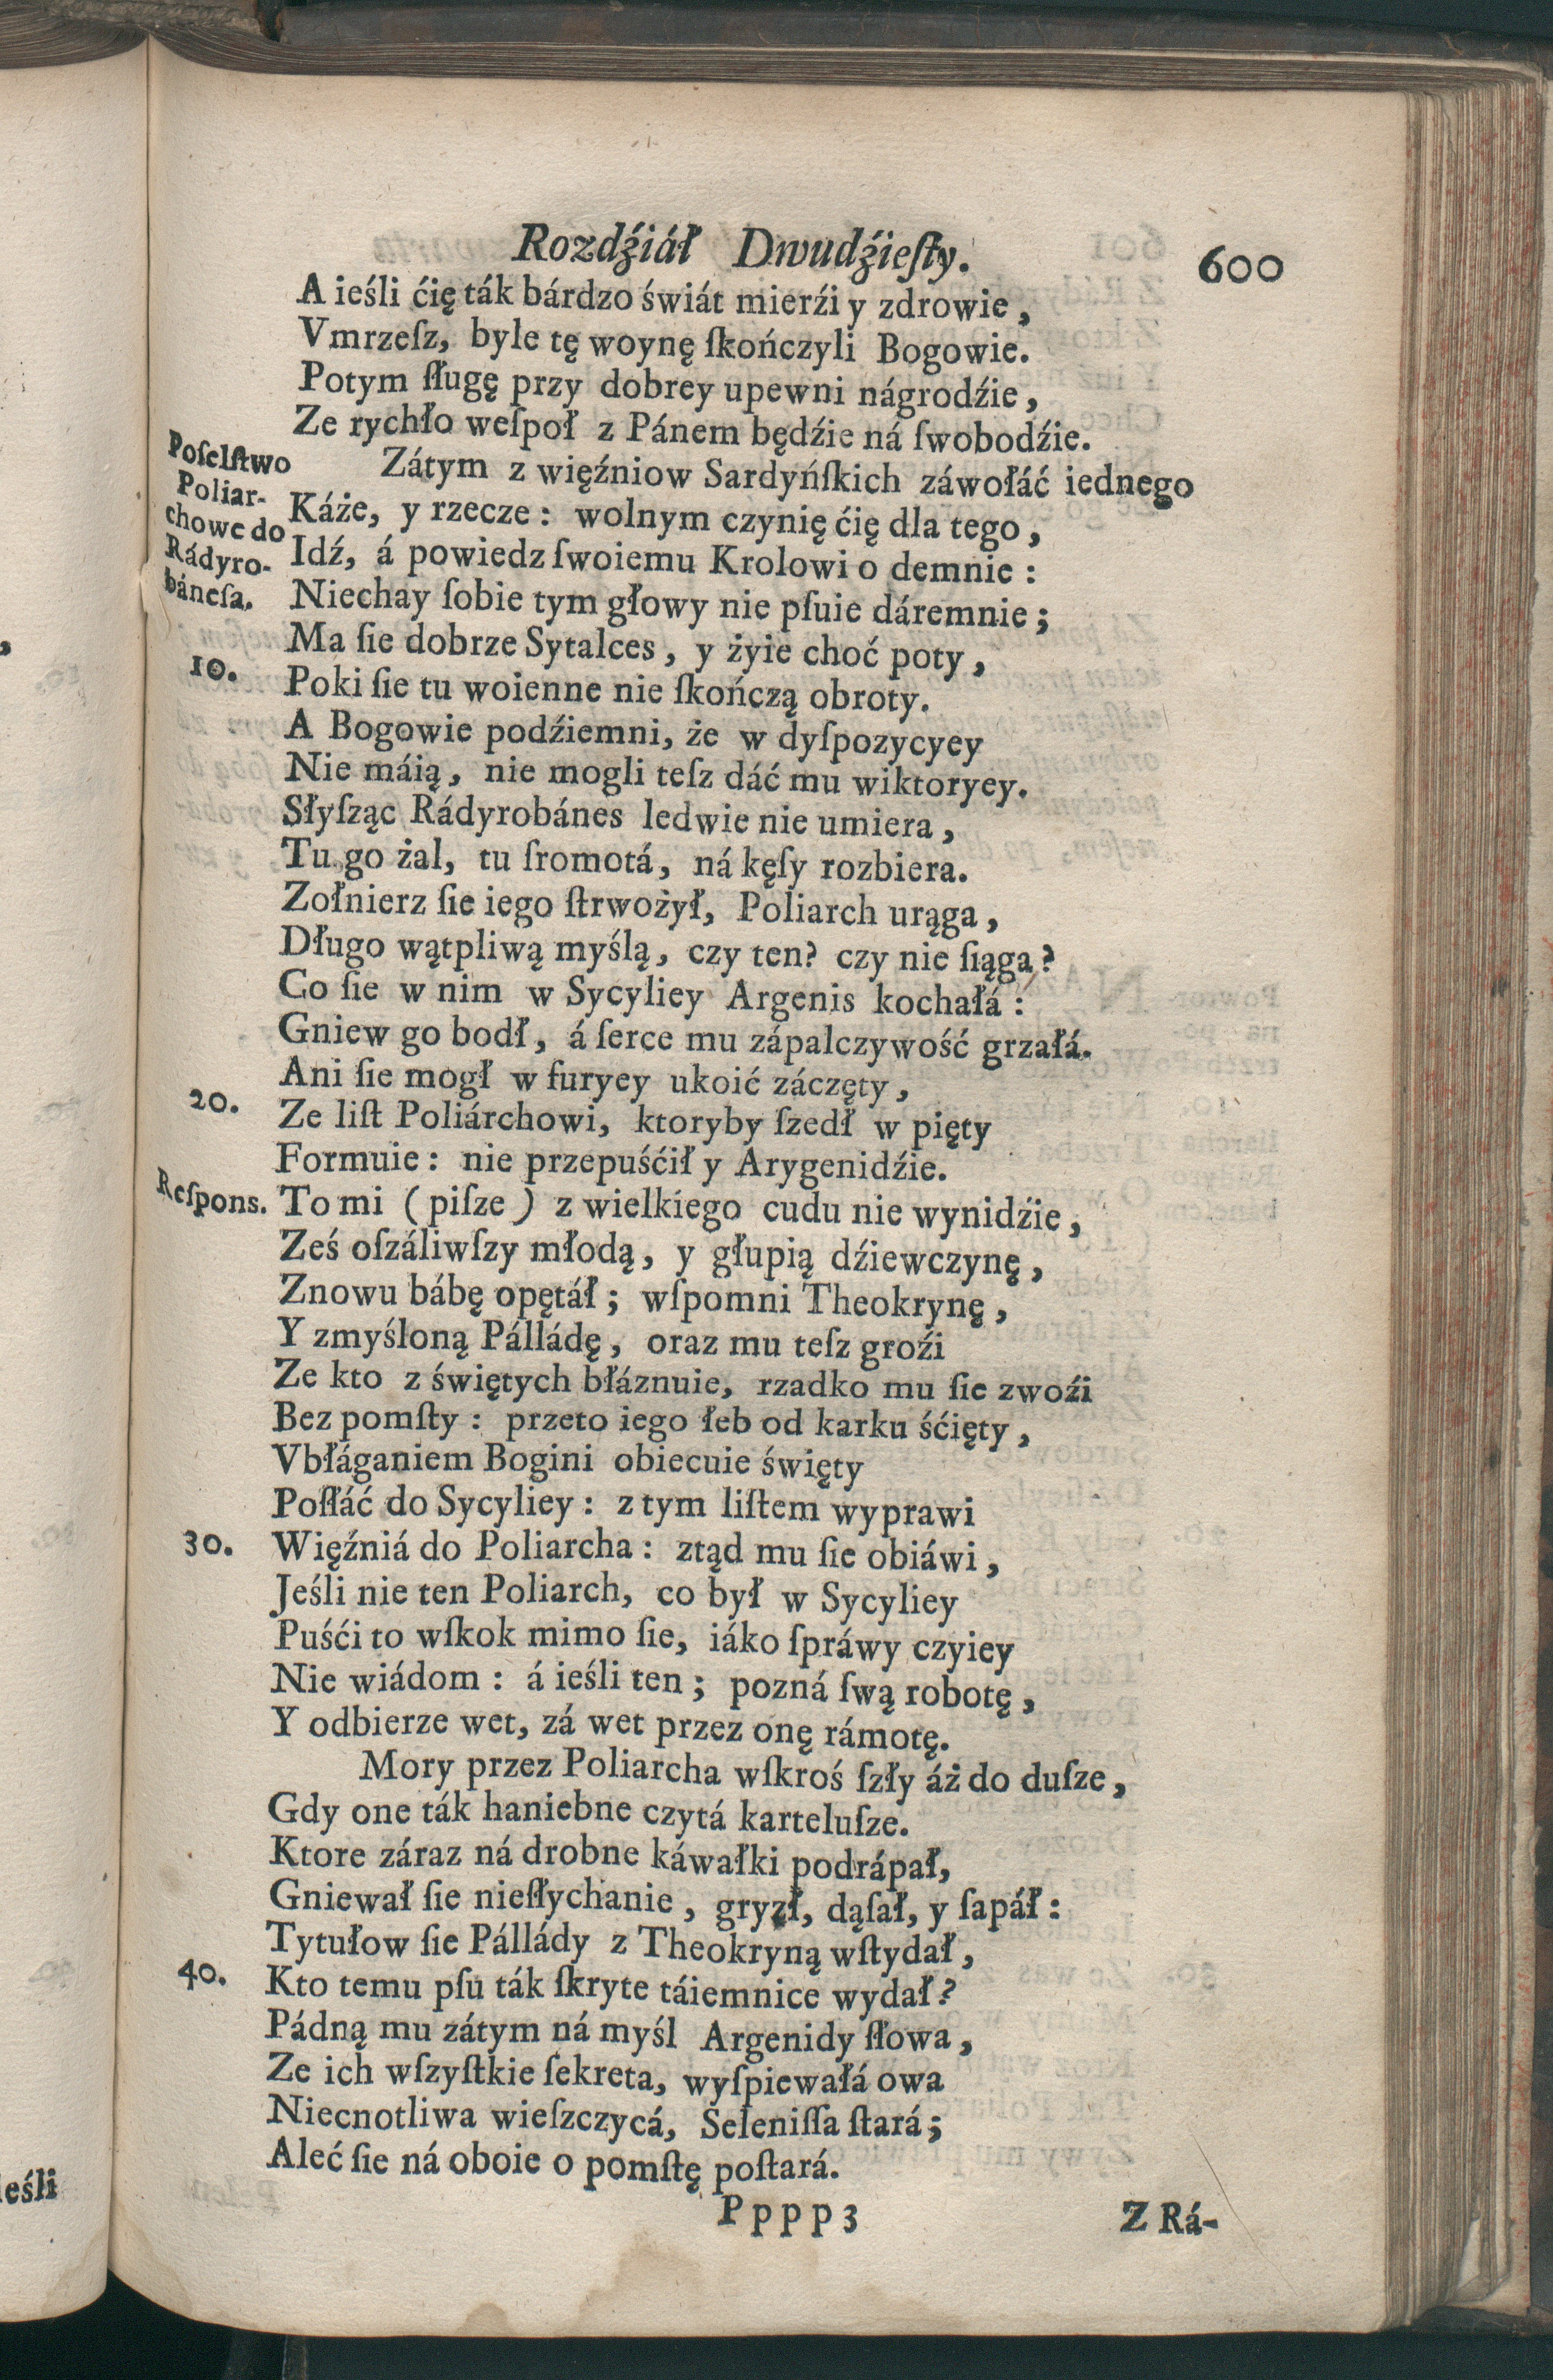 Rozdźiáł Dwudźieſty. 600
A ieśli ćię ták bárdzo świát mierźi y zdrowie,
Vmrzeſz, byle tę woynę ſkończyli Bogowie.
Potym ſługę przy dobrey upewni nágrodźie,
Ze rychło weſpoł z Pánem będźie ná ſwobodźie.
Poſelſtwo Poliar-chowe do Rádyro-báneſa.
Zátym z więźniow Sardyńſkich záwołáć iednego
Káże, y rzecze: wolnym czynię ćię dla tego,
Idź, á powiedz ſwoiemu Krolowi o demnie:
Niechay ſobie tym głowy nie pſuie dáremnie;
Ma ſie dobrze Sytalces, y żyie choć poty,
10. Poki ſie tu woienne nie ſkończą obroty.
A Bogowie podźiemni, że w dyſpozycyey
Nie máią, nie mogli teſz dáć mu wiktoryey.
Słyſząc Rádyrobánes ledwie nie umiera,
Tu go żal, tu ſromotá, ná kęſy rozbiera.
Zołnierz ſie iego ſtrwożył, Poliarch urąga,
Długo wątpliwą myślą, czy ten? czy nie ſiąga?
Co ſie w nim w Sycyliey Argenis kochałá:
Gniew go bodł, á ſerce mu zápalczywość grzałá.
Ani ſie mogł w furyey ukoić záczęty,
20. Ze liſt Poliárchowi, ktoryby ſzedł w pięty
Formuie: nie przepuśćił y Arygenidźie.
Reſpons. To mi (piſze) z wielkiego cudu nie wynidźie,
Ześ oſzáliwſzy młodą, y głupią dźiewczynę,
Znowu bábę opętáł; wſpomni Theokrynę,
Y zmyśloną Pálládę, oraz mu teſz groźi
Ze kto z świętych błáznuie, rzadko mu ſie zwoźi
Bez pomſty: przeto iego łeb od karku śćięty,
Vbłáganiem Bogini obiecuie święty
Poſłáć do Sycyliey: z tym liſtem wyprawi
30. Więźniá do Poliarcha: ztąd mu ſie obiáwi,
Jeśli nie ten Poliarch, co był w Sycyliey
Puśći to wſkok mimo ſie, iáko ſpráwy czyiey
Nie wiádom: á ieśli ten; pozná ſwą robotę,
Y odbierze wet, zá wet przez onę rámotę.
Mory przez Poliarcha wſkroś ſzły áż do duſze,
Gdy one ták haniebne czytá karteluſze.
Ktore záraz ná drobne káwałki podrápał,
Gniewał ſie nieſłychanie, gryzł, dąſał, y ſapáł:
Tytułow ſie Pállády z Theokryną wſtydał,
40. Kto temu pſu ták ſkryte táiemnice wydał?
Pádną mu zátym ná myśl Argenidy ſłowa,
Ze ich wſzyſtkie ſekreta, wyſpiewałá owa
Niecnotliwa wieſzczycá, Seleniſſa ſtará;
Aleć ſie ná oboie o pomſtę poſtará.
Pppp3 Z Rá-
ieśli